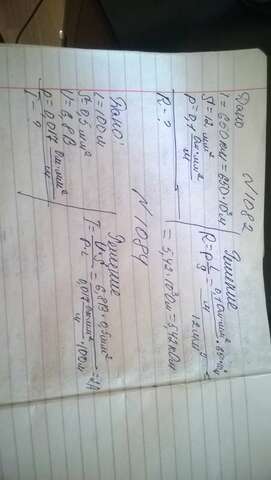 N 1082
Дано
l = 650 км = 650·10³ м
S = 12 мм²
ρ = 0,1 Ом·мм²/м
R = ?
Решение
R = ρ l/S = 0,1 Ом·мм²/м · 650·10³ м / 12 мм²
= 5,42·10³ Ом = 5,42 кОм
N 1084
Дано:
l = 100 м
S = 0,5 мм²
U = 6,8 В
ρ = 0,017 Ом·мм²/м
I - ?
Решение
I = U·S / ρ·l = 6,8 В · 0,5 мм² / 0,017 Ом·мм²/м · 100 м = 2 А